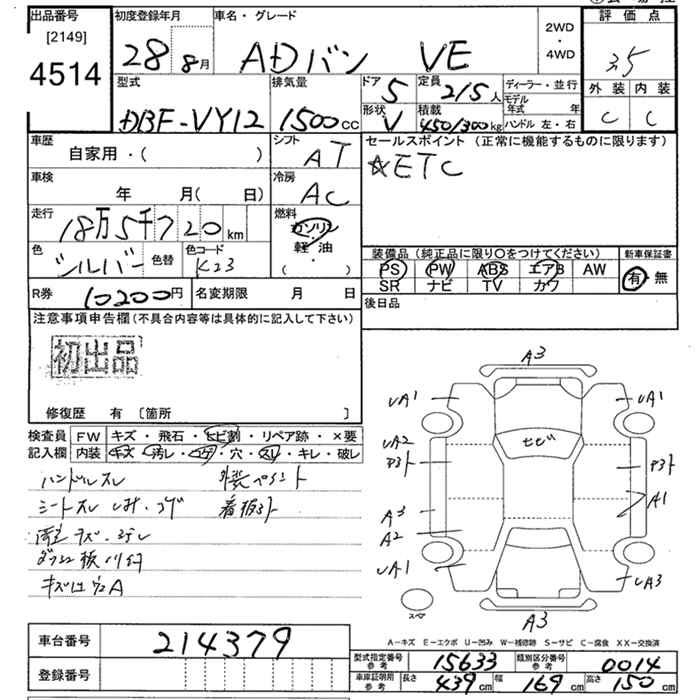 出品番号 初度登録年月 車名・グレード 評価点
[2149] 28年 8月 ADバン VE 2WD・4WD 3.5
4514
型式 排気量 ドア 5 定員 2/5人 ディーラー・並行 外装 内装
DBF-VY12 1500cc 形状 V 積載 450/300kg モデル年式 年 C C
ハンドル 左・右
車歴 シフト セールスポイント (正常に機能するものに限ります)
自家用・( ) AT ☆ETC
車検 冷房
年 月( 日) AC
走行 燃料
18万5千720km ガソリン・軽油
色 色替 色コード ( )
シルバー K23
装備品 (純正品に限り○をつけてください) 新車保証書
PS PW ABS エアB AW 有 無
SR ナビ TV カワ
R券 10200円 名変期限 月 日 後日品
注意事項申告欄(不具合内容等は具体的に記入して下さい)
初出品
修復歴 有 [箇所 ]
検査員記入欄 FW キズ・飛石・ヒビ割・リペア跡・×要
内装 キズ・汚レ・コゲ・穴・スレ・キレ・破レ
ハンドルスレ 外装ペイント
シートスレ シミ・コゲ 看板跡
キズ
A3
UA1 UA1
UA2 ヒビ
A3 A1
A2
UA1 UA3
スペア A3
A-キズ E-エクボ U-凹み W-補修跡 S-サビ C-腐食 XX-交換済
車台番号 214379
登録番号
型式指定番号参考 15633 類別区分番号参考 0014
車車証明用参考 長さ 439cm 幅 169cm 高さ 150cm